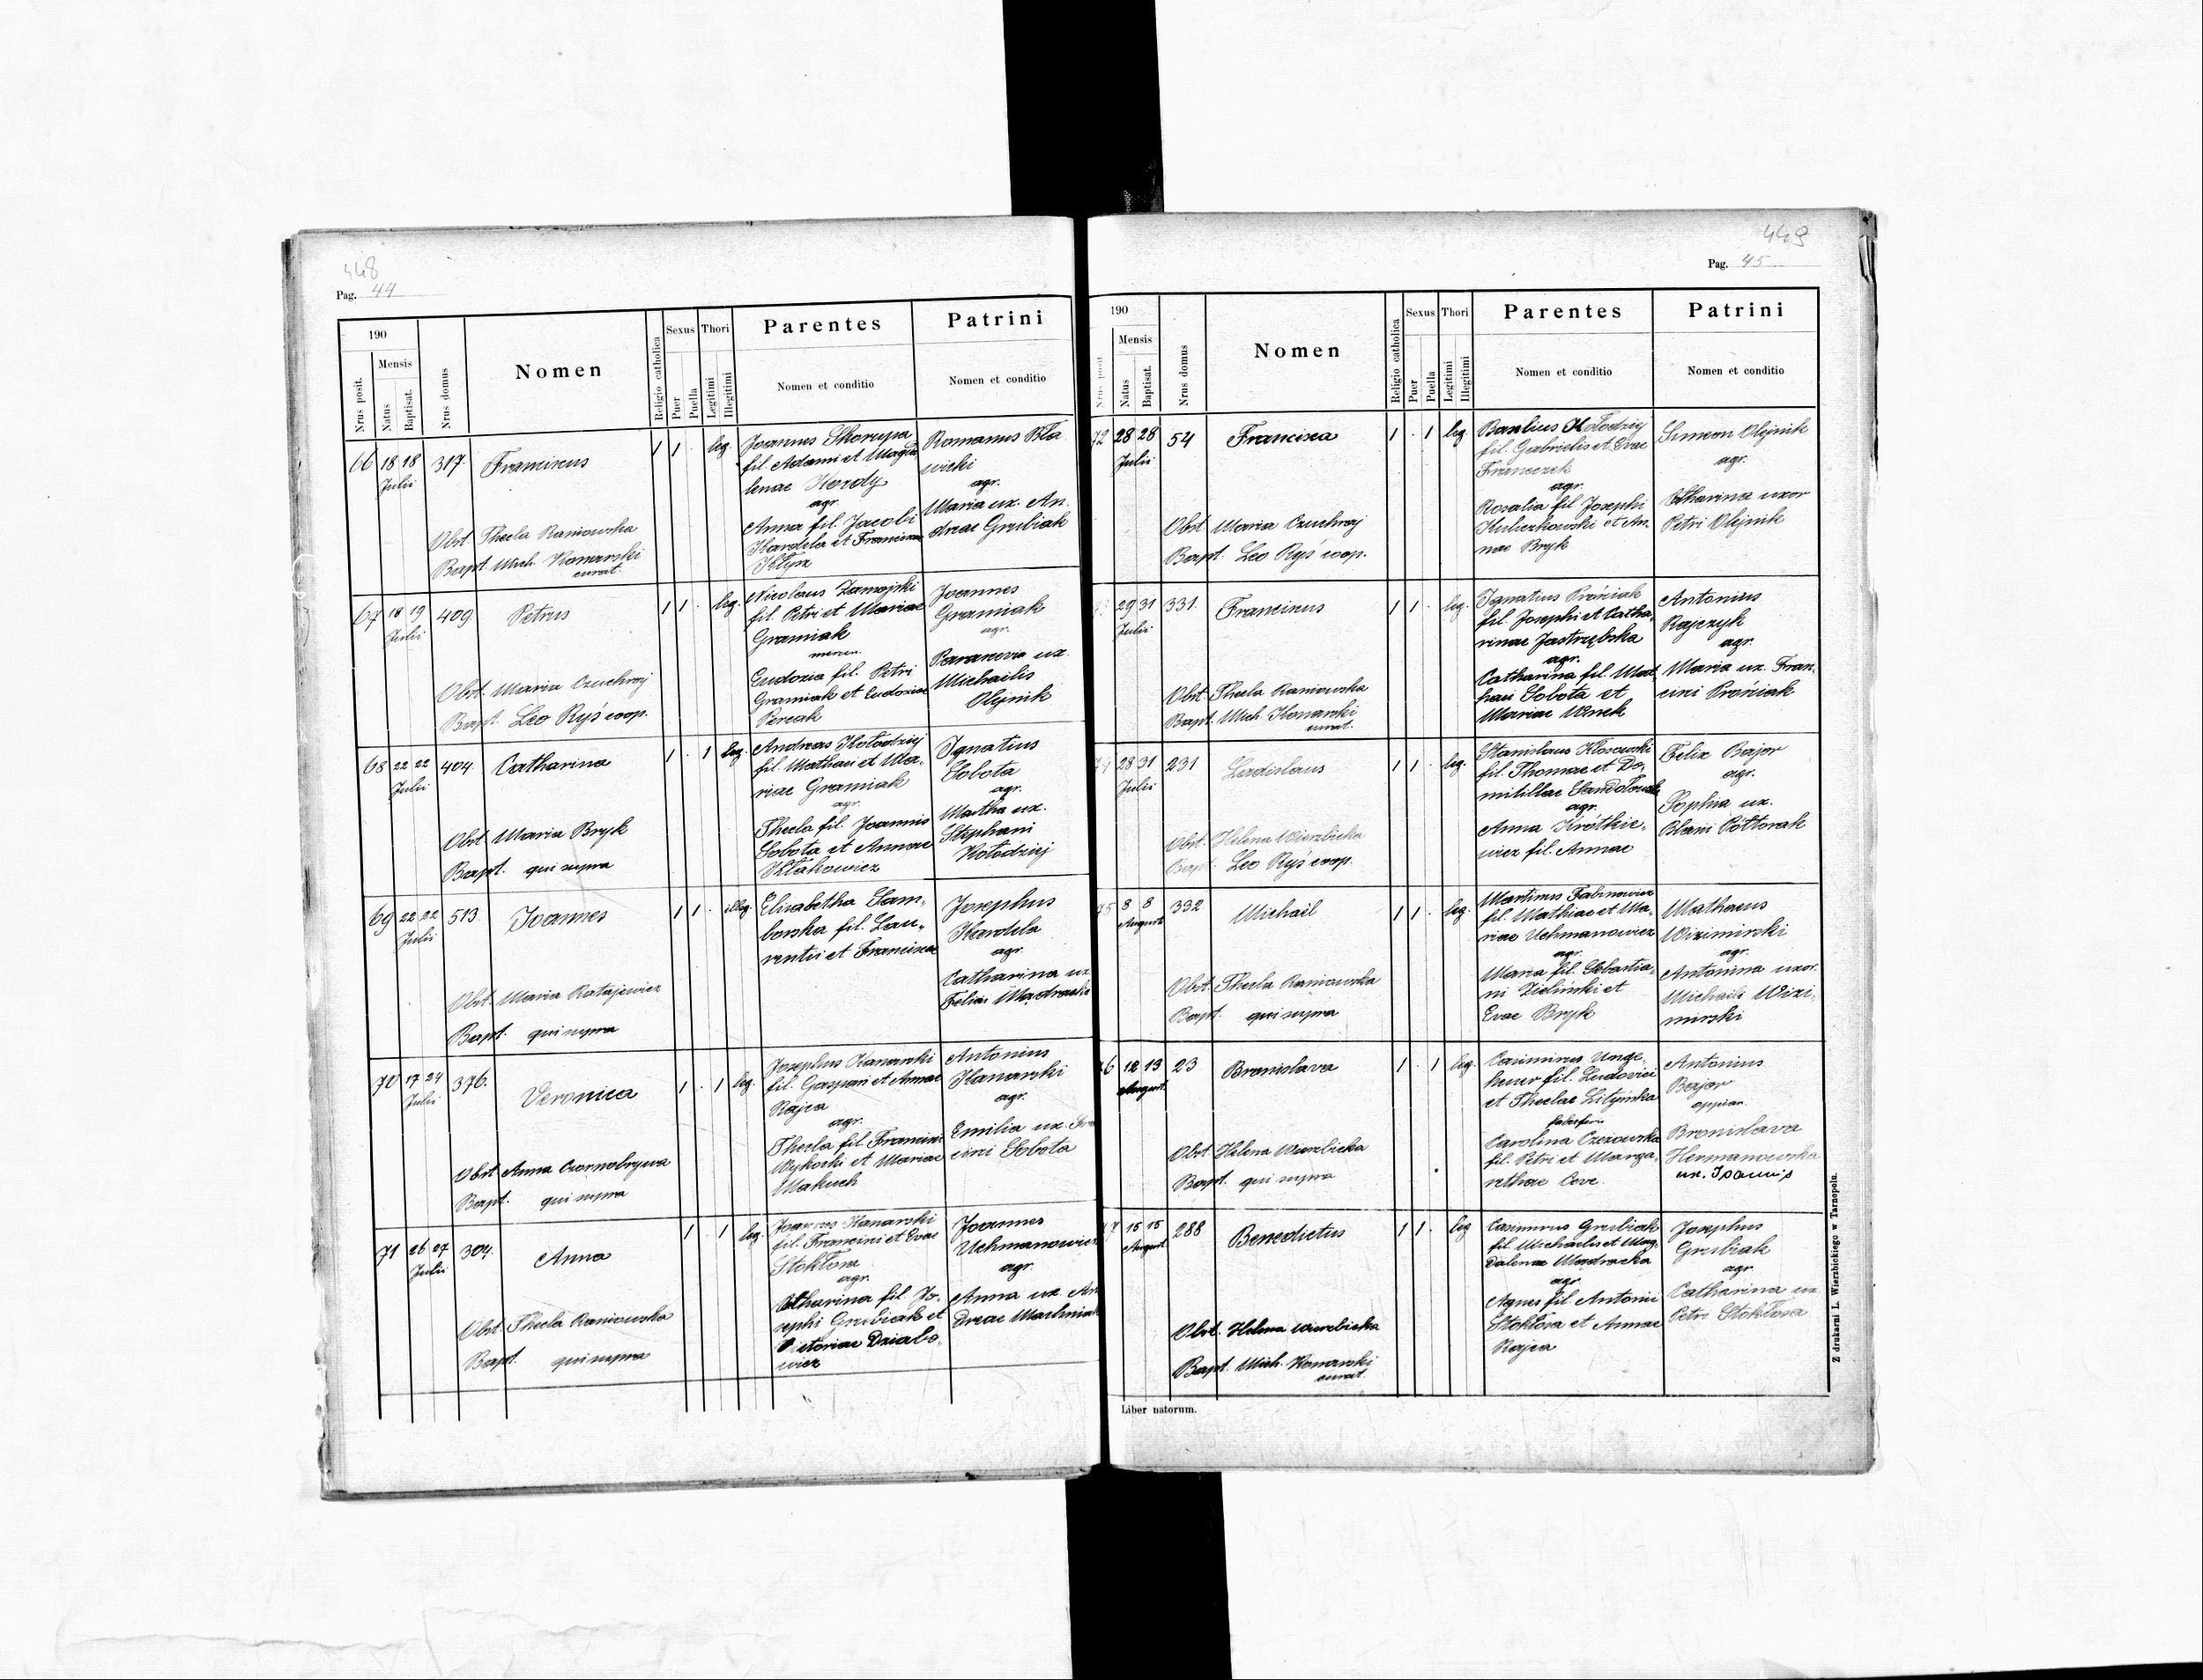 448
Pag. 44
190
Nrus posit.
Mensis
Natus
Baptisat.
Nrus domus
Nomen
Religio catholica
Sexus
Puer
Puella
Thori
Legitimi
Illegitimi
Parentes
Nomen et conditio
Patrini
Nomen et conditio
66 18 18 317. Franciscus 1 1 . leg.
Julii
Obst. Thecla Raniowska
Bapt. Mich. Konarski
curat.
Joannes Skorupa
fil. Adami et Magda
lenae
agr.
Anna fil. Jacobi
Kardela et Franciscae
Romanus Bła
wicki
agr.
Maria ux. An-
dreae Grubiak
67 18 19 409 Petrus 1 1 . leg.
Julii
Obst. Maria Czuchraj
Bapt. Leo Ryś coop.
Nicolaus Zamojski
fil. Petri et Mariae
Graniak
mercen.
Eudoxia fil. Petri
Graniak et Eudoxiae
Joannes
Graniak
agr.
Paraxevia ux.
Michaelis
Olejnik
68 22 22 404 Catharina 1 . 1 leg.
Julii
Obst. Maria Bryk
Bapt. qui supra
Andreas Kołodziej
fil. Mathaei et Ma-
riae Graniak
agr.
Thecla fil. Joannis
Sobota et Annae
Ignatius
Sobota
agr.
Martha ux.
Stephani
Kołodziej
69 22 22 513. Joannes 1 1 . illeg.
Julii
Obst. Maria Ratajewicz
Bapt. qui supra
Elisabetha Sam-
borska fil. Lau-
rentii et Franciscae
Josephus
Kardela
agr.
Catharina ux
Felicis
70 17 24 376. Veronica 1 . 1 leg.
Julii
Obst. Anna Czornobrywa
Bapt. qui supra
Josephus Kanarski
fil. Gaspari et Annae
Rajca
agr.
Thecla fil. Francisci
Wykocki et Mariae
Makuch
Antonius
Kanarski
agr.
Emilia ux. Fran
cisci Sobota
71 26 27 304. Anna 1 . 1 leg.
Julii
Obst. Thecla Raniowska
Bapt. qui supra
Joannes Kanarski
fil. Francisci et Evae
Stokłosa
agr.
Catharina fil. Jo-
sephi Grubiak et
Victoriae Dziabo-
wicz
Joannes
Uchmanowicz
agr.
Anna ux An
dreae Machniak
449
Pag. 45
190
Nrus posit
Mensis
Natus
Baptisat.
Nrus domus
Nomen
Religio catholica
Sexus
Puer
Puella
Thori
Legitimi
Illegitimi
Parentes
Nomen et conditio
Patrini
Nomen et conditio
72 28 28 54 Francisca 1 . 1 leg.
Julii
Obst. Maria Czuchraj
Bapt. Leo Ryś coop.
Basilius Kołodziej
fil. Gabrielis et Evae
Franczek
agr.
Rosalia fil Josephi
et An-
nae Bryk
Simeon Olejnik
agr.
Catharina uxor
Petri Olejnik
29 31 331. Franciscus 1 1 . leg.
Julii
Obst. Thecla Raniowska
Bapt. Mich. Konarski
curat.
Ignatius Prośniak
fil. Josephi et Catha-
rinae Jastrzębska
agr.
Catharina fil. Mat
haei Sobota et
Mariae
Antonius
Rajczyk
agr.
Maria ux. Fran-
cisci Prośniak
74 28 31 231 Ladislaus 1 1 . leg.
Julii
Obst. Helena Wierzbicka
Bapt. Leo Ryś coop.
Stanislaus Kłosowski
fil. Thomae et Do-
mitillae
agr.
Anna Krótkie-
wicz fil. Annae
Felix Bajor
agr.
Sophia ux.
Blasii Półtorak
75 8 8 332 Michaël 1 1 . leg.
Augusti
Obst. Thecla Raniowska
Bapt. qui supra
Martinus Fabinowicz
fil. Mathiae et Ma-
riae Uchmanowicz
agr.
Maria fil. Sebastia-
ni Zieliński et
Evae Bryk
Mathaeus
Wizimirski
agr.
Antonina uxor.
Michaeli Wizi-
mirski
76 12 13 23 Bronislava 1 . 1 leg.
August.
Obst. Helena Wierzbicka
Bapt. qui supra
Casimirus Unge-
heuer fil. Ludovici
et Theclae Lityńska
Carolina Czerowska
fil. Petri et Marga-
rethae Cove
Antonius
Bajor
oppidan.
Bronislava
Hermanowska
ux. Joannis
15 15 288 Benedictus 1 1 . leg
August
Obst. Helena Wierzbicka
Bapt. Mich. Konarski
curat.
Casimirus Grubiak
fil. Michaelis et Mag-
dalenae
agr.
Agnes fil. Antonii
Stokłosa et Annae
Rajca
Josephus
Grubiak
agr.
Catharina ux
Petri Stokłosa
Liber natorum.
Z drukarni L. Wierzbickiego w Tarnopolu.